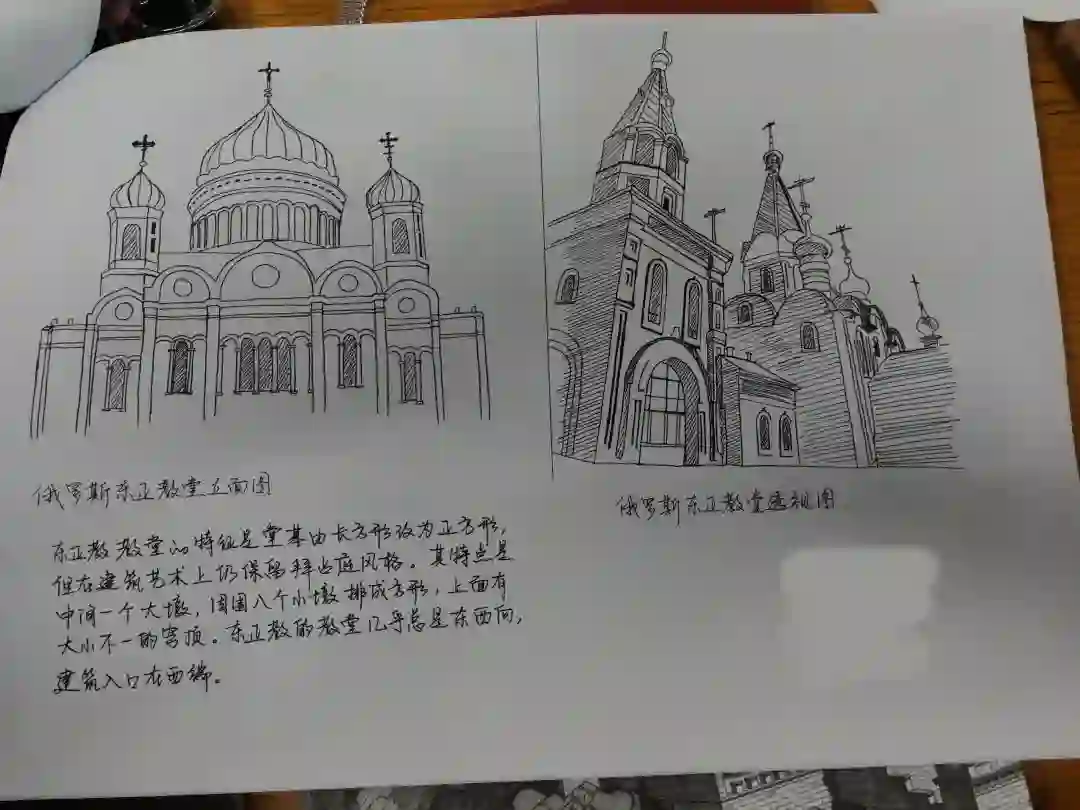 俄罗斯东正教堂立面图
俄罗斯东正教堂透视图
东正教教堂的特征是堂基由长方形改为正方形，
但在建筑艺术上仍保留拜占庭风格。其特点是
中间一个大墩，周围八个小墩排成方形，上面有
大小不一的穹顶。东正教的教堂几乎总是东西向，
建筑入口在西端。